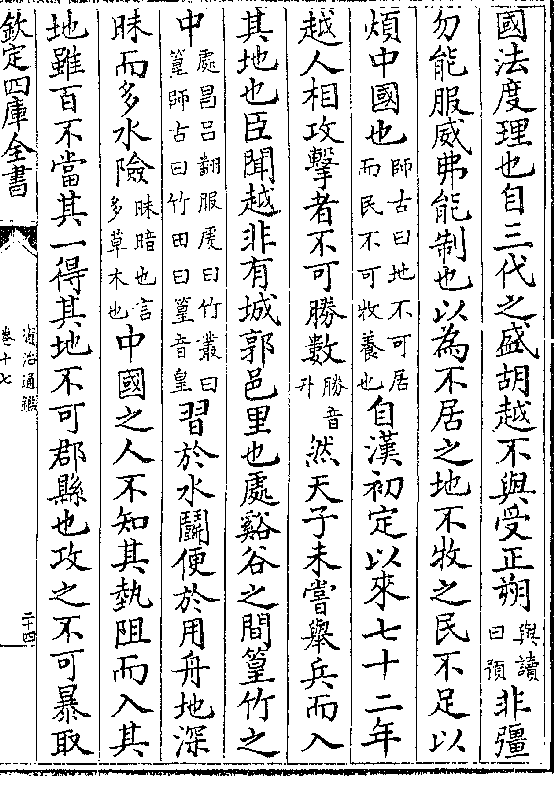 國法度理也自三代之盛胡越不與受正朔與讀曰預非彊
勿能服威弗能制也以為不居之地不牧之民不足以
煩中國也師古曰地不可居而民不可牧養也自漢初定以來七十二年
越人相攻擊者不可勝數勝音升然天子未嘗舉兵而入
其地也臣聞越非有城郭邑里也處谿谷之間篁竹之
中處昌呂翻服虔曰竹叢曰篁師古曰竹田曰篁音皇習於水鬬便於用舟地深
昧而多水險昧暗也言多草木也中國之人不知其埶阻而入其
地雖百不當其一得其地不可郡縣也攻之不可暴取
欽定四庫全書
資治通鑑
卷十七
二十四